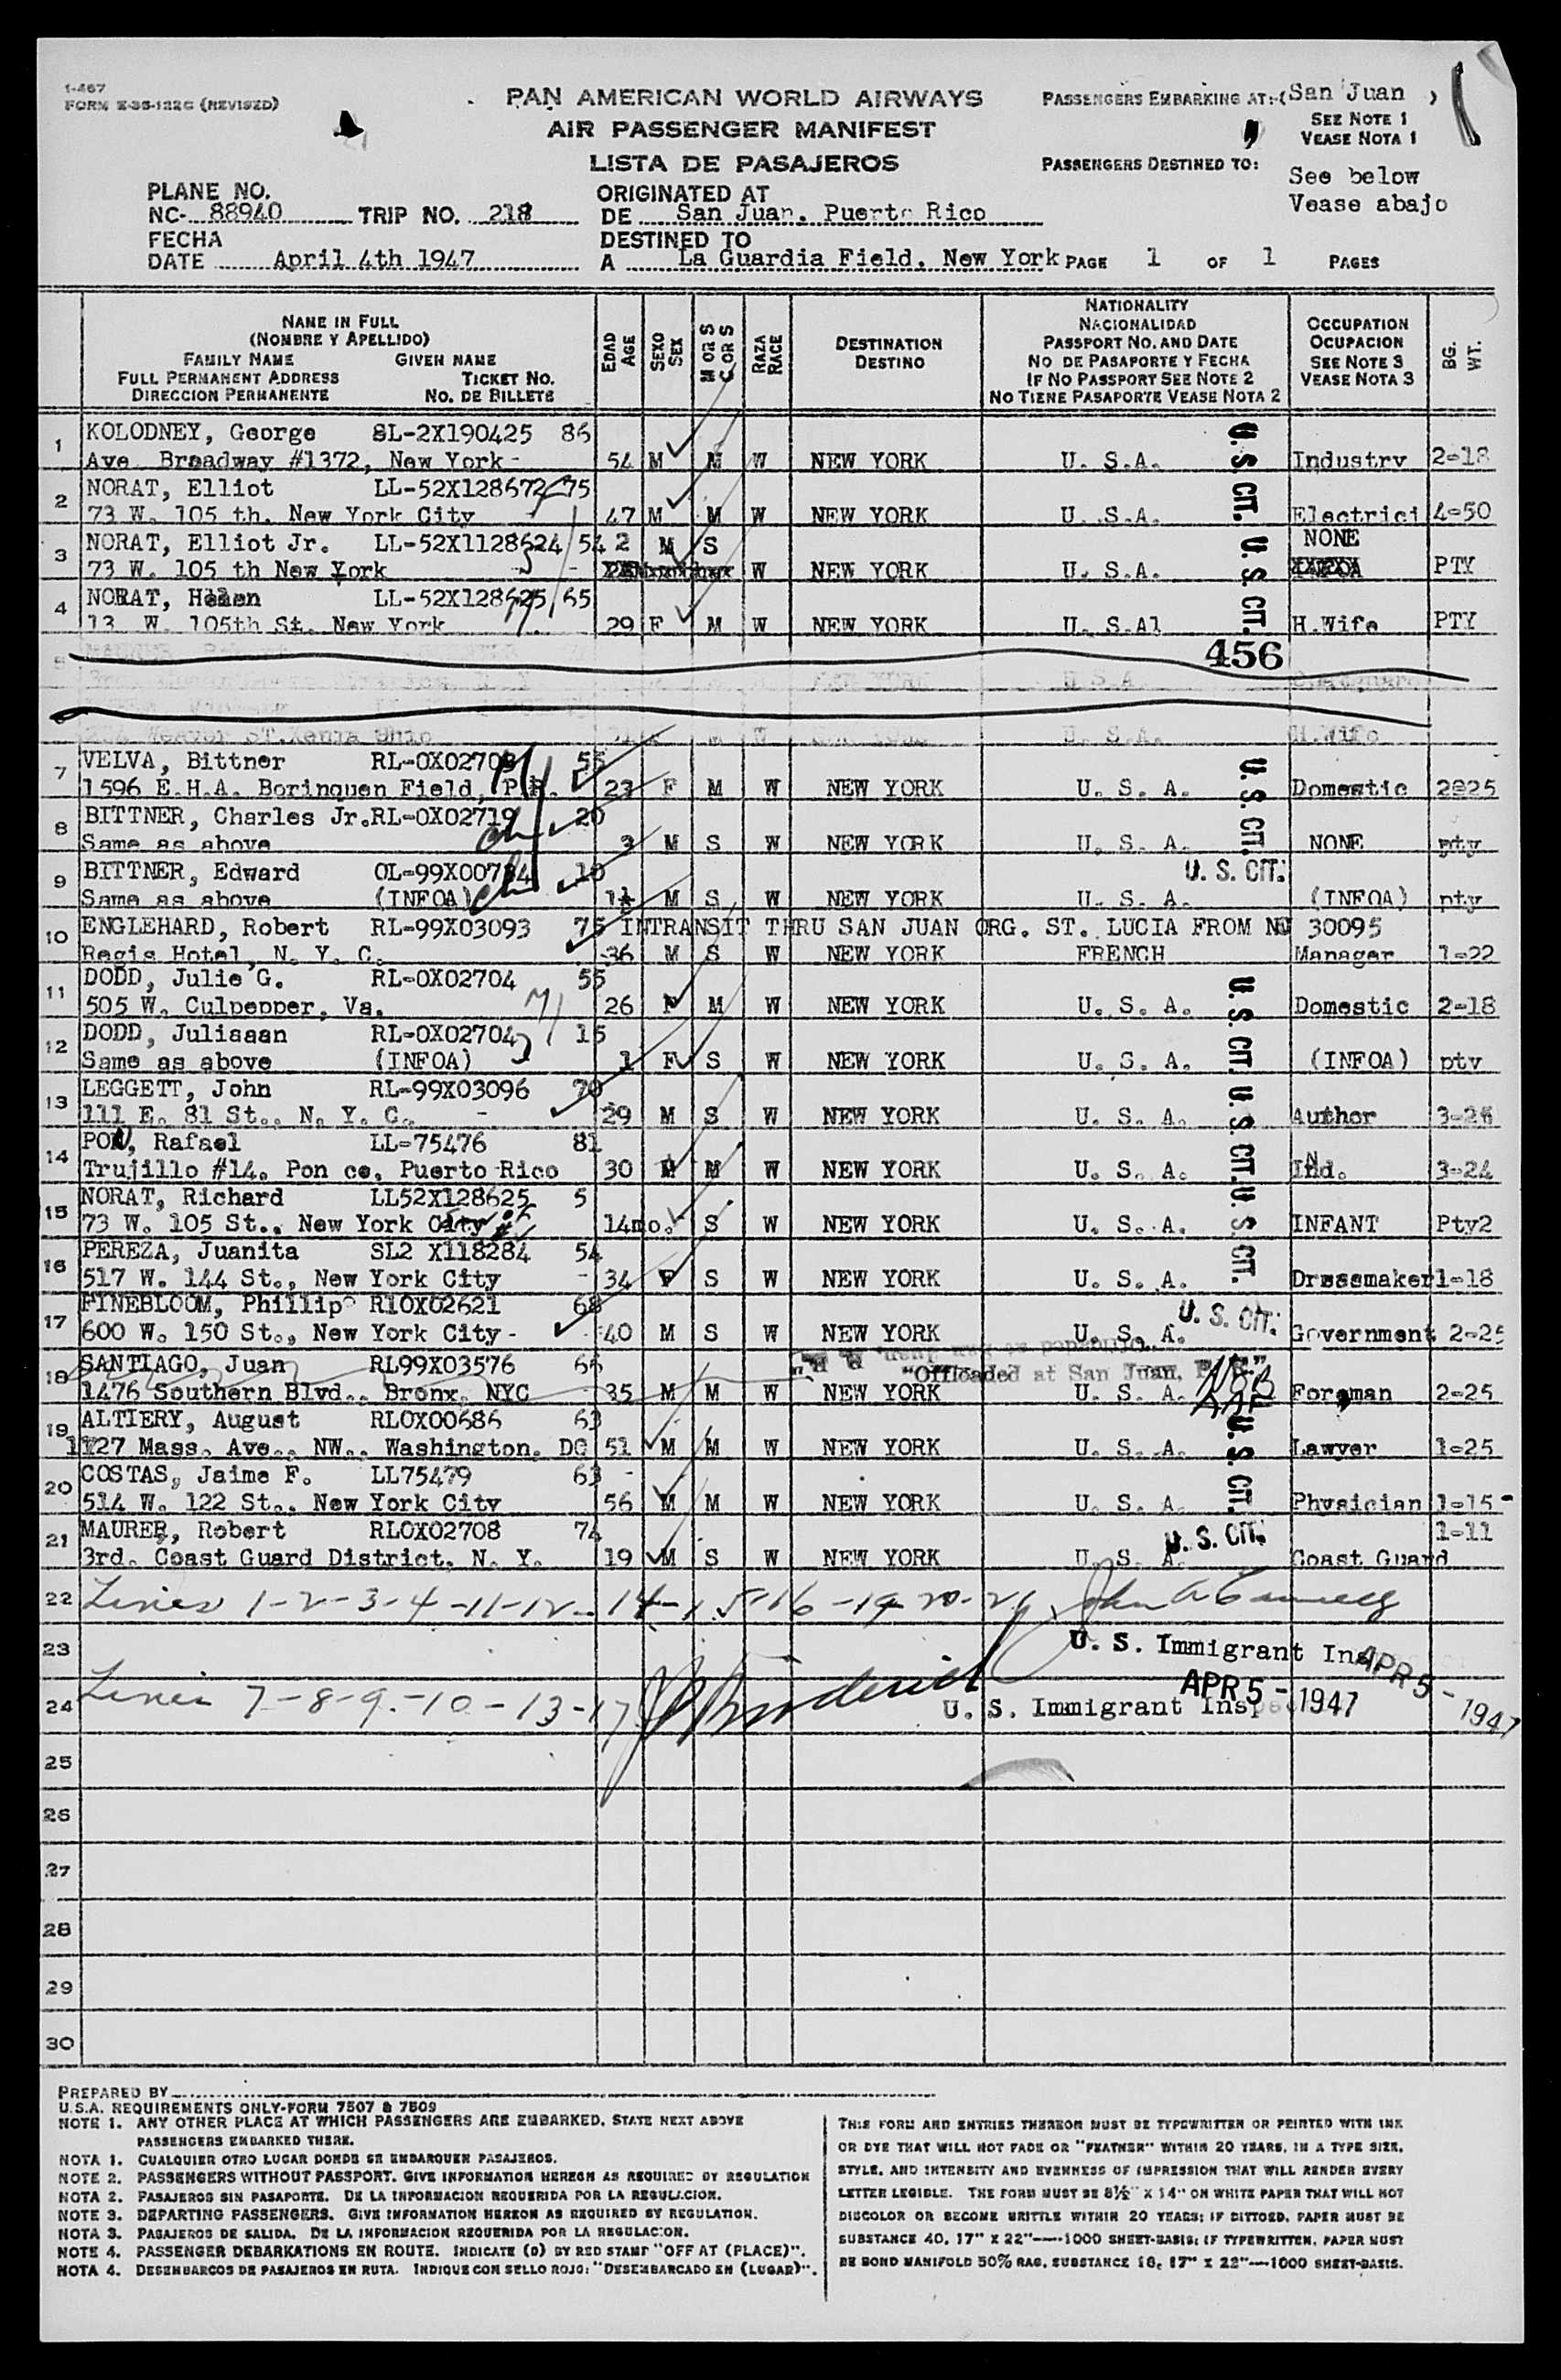 1-467
FORM E-35-122G (REVISED)
PAN AMERICAN WORLD AIRWAYS
AIR PASSENGER MANIFEST
LISTA DE PASAJEROS
PASSENGERS EMBARKING AT:-(San Juan )
SEE NOTE 1
VEASE NOTA 1
PASSENGERS DESTINED TO:
See below
Vease abajo
PLANE NO.
NC- 88940 TRIP NO. 218
FECHA
DATE April 4th 1947
ORIGINATED AT
DE San Juan. Puerto Rico
DESTINED TO
A La Guardia Field. New York PAGE 1 OF 1 PAGES
NAME IN FULL
(NOMBRE Y APELLIDO)
FAMILY NAME GIVEN NAME
FULL PERMANENT ADDRESS TICKET NO.
DIRECCION PERMANENTE NO. DE BILLETE
EDAD AGE
SEXO SEX
M OR S C OR S
RAZA RACE
DESTINATION
DESTINO
NATIONALITY
NACIONALIDAD
PASSPORT NO. AND DATE
NO DE PASAPORTE Y FECHA
IF NO PASSPORT SEE NOTE 2
NO TIENE PASAPORTE VEASE NOTA 2
OCCUPATION
OCUPACION
SEE NOTE 3
VEASE NOTA 3
BG. WT.
1 KOLODNEY, George SL-2X190425 86
Ave Broadway #1372, New York- 54 M M W NEW YORK U. S.A. U.S CIT. Industry 2-18
2 NORAT, Elliot LL-52X128672 75
73 W. 105 th. New York City 47 M M W NEW YORK U. .S.A. Electrici 4-50
3 NORAT, Elliot Jr. LL-52X1128624 54 2 M S NONE
73 W. 105 th New York W NEW YORK U. S.A. U.S CIT. PTY
4 NORAT, Helen LL-52X128625 65
13 W. 105th St. New York 29 F M W NEW YORK U. S.Al H.Wife PTY
456
5
U S A
6
ST.Xenia Ohio M W U. S.A. H.Wife
7 VELVA, Bittner RL-0X02703 55
1596 E.H.A. Borinquen Field, P.R. 23 F M W NEW YORK U. S. A. U.S. CIT. Domestic 2825
8 BITTNER, Charles Jr.RL-0X02719 20
Same as above 3 M S W NEW YORK U. S. A. NONE pty
9 BITTNER, Edward OL-99X00784 10 U. S. CIT.
Same as above (INFOA) 1½ M S W NEW YORK U. S. A (INFOA) pty
10 ENGLEHARD, Robert RL-99X03093 75 INTRANSIT THRU SAN JUAN ORG. ST. LUCIA FROM NU 30095
Regis Hotel, N. Y. C. 36 M S W NEW YORK FRENCH Manager 1-22
11 DODD, Julie G. RL-0X02704 55
505 W. Culpepper, Va. 26 F M W NEW YORK U. S. A. U. S. CIT. Domestic 2-18
12 DODD, Juliaaan RL-0X02704 15
Same as above (INFOA) 1 F S W NEW YORK U. S. A. (INFOA) pty
13 LEGGETT, John RL-99X03096 70
111 E. 81 St., N. Y. C. 29 M S W NEW YORK U. S. A. U. S. CIT. Author 3-25
14 PON, Rafael LL-75476 81
Trujillo #14. Pon ce, Puerto Rico 30 M M W NEW YORK U. S. A. Ind. 3-24
15 NORAT, Richard LL52X128625 5
73 W. 105 St., New York City 14mo. S W NEW YORK U. S. A. U. S. CIT. INFANT Pty2
16 PEREZA, Juanita SL2 X118284 54
517 W. 144 St., New York City 34 F S W NEW YORK U. S. A. Dressmaker 1-18
17 FINEBLOOM, Phillip R10X02621 68 U. S. CIT.
600 W. 150 St., New York City- 40 M S W NEW YORK U. S. A. Government 2-25
18 SANTIAGO, Juan RL99X03576 66 "Offloaded at San Juan, P. R."
1476 Southern Blvd., Bronx, NYC 35 M M W NEW YORK U. S. A. Foreman 2-25
19 ALTIERY, August RLOX00686 63
1727 Mass. Ave., NW., Washington, DC 51 M M W NEW YORK U. S. A. U. S. CIT. Lawyer 1-25
20 COSTAS, Jaime F. LL75479 63
514 W. 122 St., New York City 56 M M W NEW YORK U. S. A. Physician 1-15
21 MAURER, Robert RLOX02708 74 U. S. CIT. 1-11
3rd. Coast Guard District, N. Y. 19 M S W NEW YORK U. S. A. Coast Guard
22 Lines 1-2-3-4-11-12-14-15-16-19-20-21
23 U. S. Immigrant Ins APR 5 - 1947
24 Lines 7-8-9-10-13-17 U. S. Immigrant Insp APR 5 - 1947
25
26
27
28
29
30
PREPARED BY
U.S.A. REQUIREMENTS ONLY-FORM 7507 & 7509
NOTE 1. ANY OTHER PLACE AT WHICH PASSENGERS ARE EMBARKED, STATE NEXT ABOVE
PASSENGERS EMBARKED THERE.
NOTA 1. CUALQUIER OTRO LUGAR DONDE SE EMBARQUEN PASAJEROS.
NOTE 2. PASSENGERS WITHOUT PASSPORT. GIVE INFORMATION HEREON AS REQUIRED BY REGULATION
NOTA 2. PASAJEROS SIN PASAPORTE. DE LA INFORMACION REQUERIDA POR LA REGULACION.
NOTE 3. DEPARTING PASSENGERS. GIVE INFORMATION HEREON AS REQUIRED BY REGULATION.
NOTA 3. PASAJEROS DE SALIDA. DE LA INFORMACION REQUERIDA POR LA REGULACION.
NOTE 4. PASSENGER DEBARKATIONS EN ROUTE. INDICATE (D) BY RED STAMP "OFF AT (PLACE)".
NOTA 4. DESEMBARCOS DE PASAJEROS EN RUTA. INDIQUE CON SELLO ROJO: "DESEMBARCADO EN (LUGAR)".
THIS FORM AND ENTRIES THEREON MUST BE TYPEWRITTEN OR PRINTED WITH INK
OR DYE THAT WILL NOT FADE OR "FEATHER" WITHIN 20 YEARS, IN A TYPE SIZE,
STYLE, AND INTENSITY AND EVENNESS OF IMPRESSION THAT WILL RENDER EVERY
LETTER LEGIBLE. THE FORM MUST BE 8½" X 14" ON WHITE PAPER THAT WILL NOT
DISCOLOR OR BECOME BRITTLE WITHIN 20 YEARS; IF DITTOED, PAPER MUST BE
SUBSTANCE 40, 17" X 22"—1000 SHEET-BASIS; IF TYPEWRITTEN, PAPER MUST
BE BOND MANIFOLD 50% RAG, SUBSTANCE 16, 17" X 22"—1000 SHEET-BASIS.